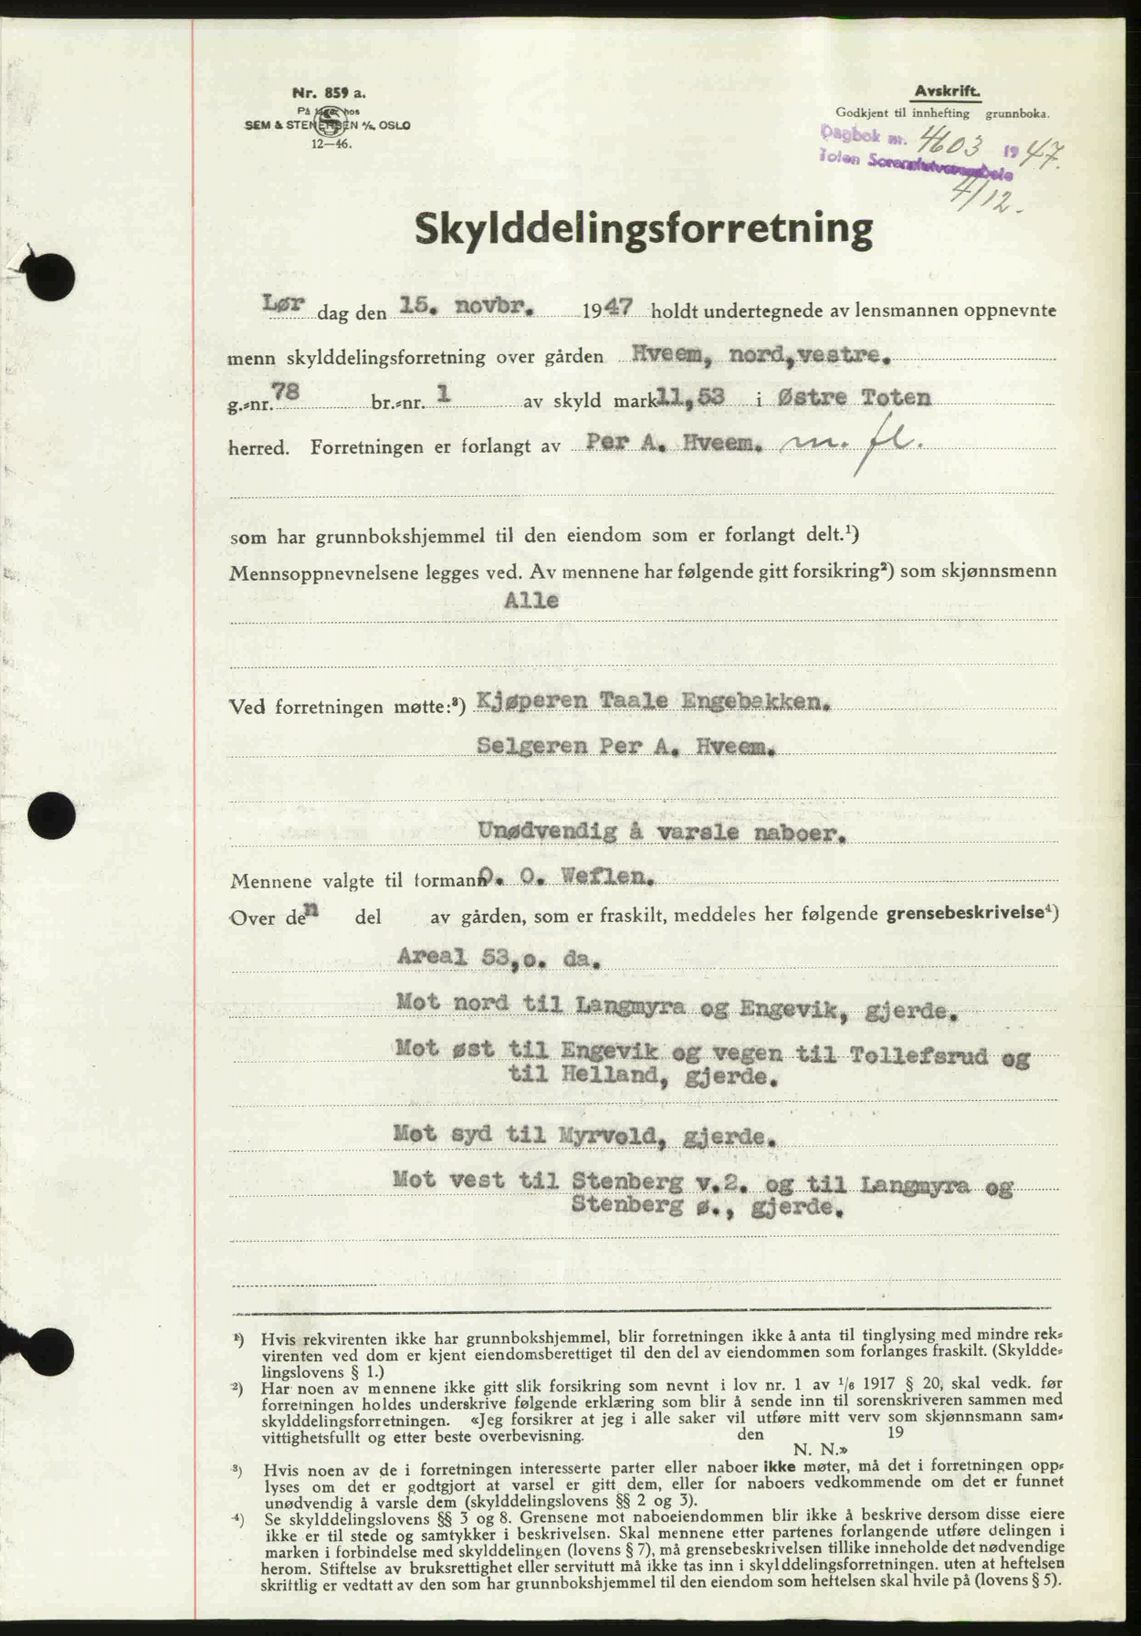 Nr. 859 a.
På lager hos
SEM & STENERSEN A/S. OSLO
12—46.
Avskrift.
Godkjent til innhefting grunnboka.
Dagbok nr. 4603 1947.
Toten Sorenskriverembete
4/12.
Skylddelingsforretning
Lør dag den 15. novbr. 1947 holdt undertegnede av lensmannen oppnevnte
menn skylddelingsforretning over gården Hveem, nord,vestre.
g.-nr. 78 br.-nr. 1 av skyld mark 11,53 i Østre Toten
herred. Forretningen er forlangt av Per A. Hveem. m. fl.
som har grunnbokshjemmel til den eiendom som er forlangt delt.¹)
Mennsoppnevnelsene legges ved. Av mennene har følgende gitt forsikring²) som skjønnsmenn
Alle
Ved forretningen møtte:³) Kjøperen Taale Engebakken.
Selgeren Per A. Hveem.
Unødvendig å varsle naboer.
Mennene valgte til formann O. O. Weflen.
Over den del av gården, som er fraskilt, meddeles her følgende grensebeskrivelse⁴)
Areal 53,o. da.
Mot nord til Langmyra og Engevik, gjerde.
Mot øst til Engevik og vegen til Tollefsrud og
til Helland, gjerde.
Mot syd til Myrvold, gjerde.
Mot vest til Stenberg v.2. og til Langmyra og
Stenberg ø., gjerde.
¹) Hvis rekvirenten ikke har grunnbokshjemmel, blir forretningen ikke å anta til tinglysing med mindre rek-
virenten ved dom er kjent eiendomsberettiget til den del av eiendommen som forlanges fraskilt. (Skyldde-
lingslovens § 1.)
²) Har noen av mennene ikke gitt slik forsikring som nevnt i lov nr. 1 av 1/6 1917 § 20, skal vedk. før
forretningen holdes underskrive følgende erklæring som blir å sende inn til sorenskriveren sammen med
skylddelingsforretningen. «Jeg forsikrer at jeg i alle saker vil utføre mitt verv som skjønnsmann sam-
vittighetsfullt og etter beste overbevisning. den 19
N. N.»
³) Hvis noen av de i forretningen interesserte parter eller naboer ikke møter, må det i forretningen opp-
lyses om det er godtgjort at varsel er gitt dem, eller for naboers vedkommende om det er funnet
unødvendig å varsle dem (skylddelingslovens §§ 2 og 3).
⁴) Se skylddelingslovens §§ 3 og 8. Grensene mot naboeiendommen blir ikke å beskrive dersom disse eiere
ikke er til stede og samtykker i beskrivelsen. Skal mennene etter partenes forlangende utføre delingen i
marken i forbindelse med skylddelingen (lovens § 7), må grensebeskrivelsen tillike inneholde det nødvendige
herom. Stiftelse av bruksrettighet eller servitutt må ikke tas inn i skylddelingsforretningen. uten at heftelsen
skriftlig er vedtatt av den som har grunnbokshjemmel til den eiendom som heftelsen skal hvile på (lovens § 5).